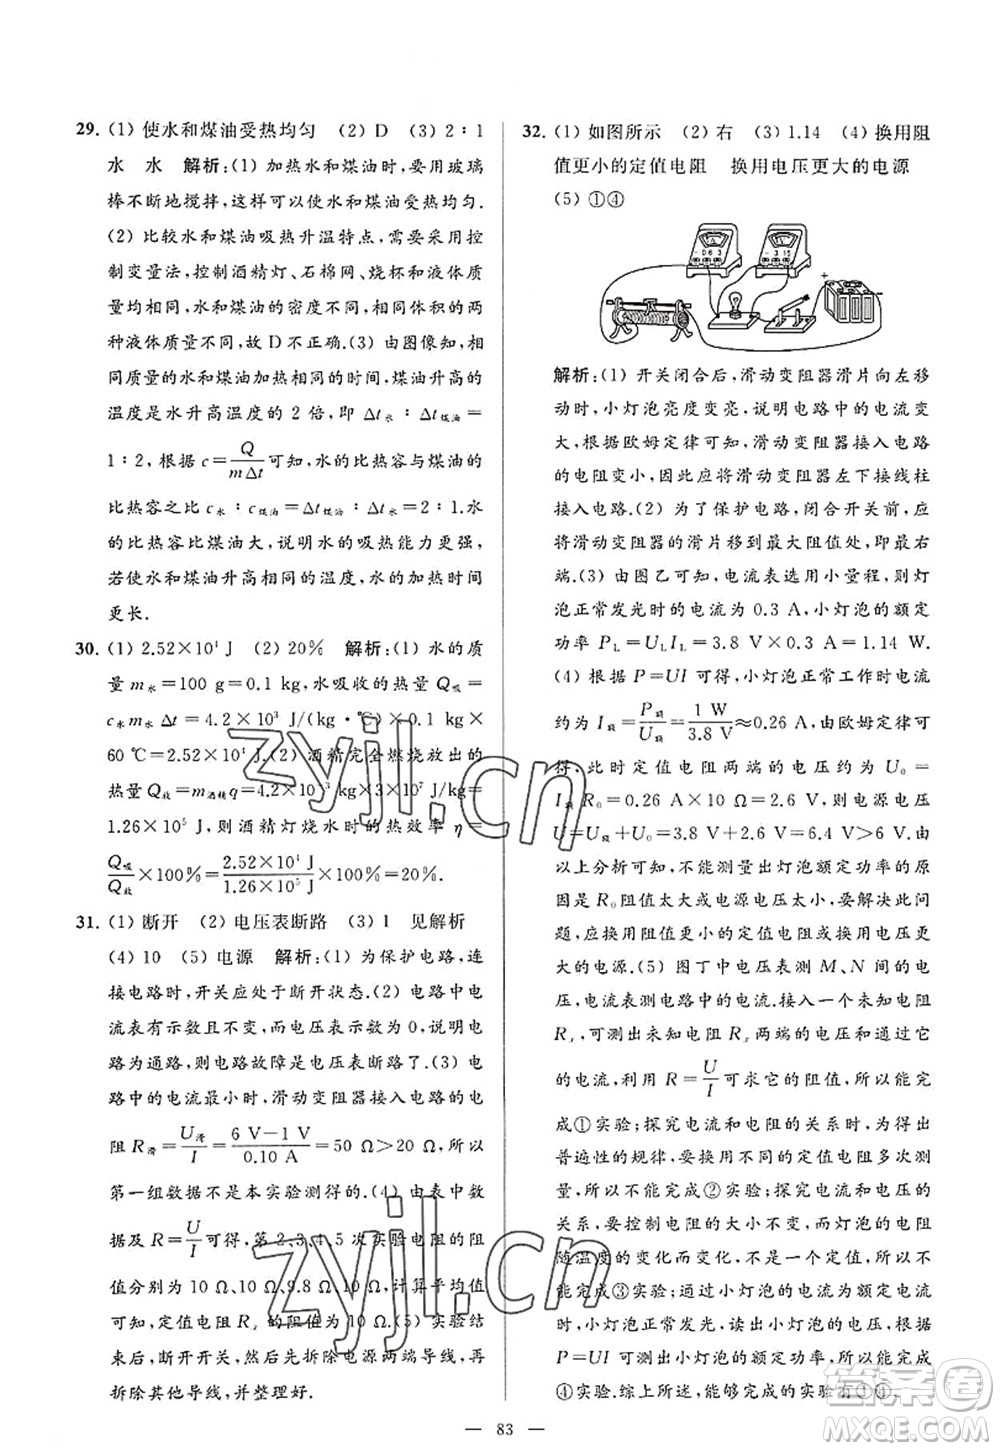 29. (1) 使水和煤油受热均匀 (2) D (3) 2∶1
水 水 解析:(1) 加热水和煤油时,要用玻璃
棒不断地搅拌,这样可以使水和煤油受热均匀.
(2) 比较水和煤油吸热升温特点,需要采用控
制变量法,控制酒精灯、石棉网、烧杯和液体质
量均相同,水和煤油的密度不同,相同体积的两
种液体质量不同,故 D 不正确.(3) 由图像知,相
同质量的水和煤油加热相同的时间,煤油升高的
温度是水升高温度的 2 倍,即 Δt水∶Δt煤油=
1∶2,根据 c=Q/mΔt可知,水的比热容与煤油的
比热容之比 c水∶c煤油=Δt煤油∶Δt水=2∶1.水
的比热容比煤油大,说明水的吸热能力更强,
若使水和煤油升高相同的温度,水的加热时间
更长.
30. (1) 2.52×10⁴ J (2) 20% 解析:(1) 水的质
量 m水=100 g=0.1 kg,水吸收的热量 Q吸=
c水m水Δt=4.2×10³ J/(kg·℃)×0.1 kg×
60 ℃=2.52×10⁴ J.(2) 酒精完全燃烧放出的
热量 Q放=m酒精q=4.2×10⁻³ kg×3×10⁷ J/kg=
1.26×10⁵ J,则用酒精灯烧水时的热效率 η=
Q吸/Q放×100%=2.52×10⁴ J/1.26×10⁵ J×100%=20%.
31. (1) 断开 (2) 电压表断路 (3) 1 见解析
(4) 10 (5) 电源 解析:(1) 为保护电路,连
接电路时,开关应处于断开状态.(2) 电路中电
流表有示数且不变,而电压表示数为 0,说明电
路为通路,则电路故障是电压表断路了.(3) 电
路中的电流最小时,滑动变阻器接入电路的电
阻 R滑=U滑/I=6 V-1 V/0.10 A=50 Ω>20 Ω,所以
第一组数据不是本实验测得的.(4) 由表中数
据及 R=U/I可得,第 2、3、4、5 次实验电阻的阻
值分别为 10 Ω、10 Ω、9.8 Ω、10 Ω,计算平均值
可知,定值电阻 Rx 的阻值为 10 Ω.(5) 实验结
束后,断开开关,然后先拆除电源两端导线,再
拆除其他导线,并整理好.
32. (1) 如图所示 (2) 右 (3) 1.14 (4) 换用阻
值更小的定值电阻 换用电压更大的电源
(5) ①④
解析:(1) 开关闭合后,滑动变阻器滑片向左移
动时,小灯泡亮度变亮,说明电路中的电流变
大,根据欧姆定律可知,滑动变阻器接入电路
的电阻变小,因此应将滑动变阻器左下接线柱
接入电路.(2) 为了保护电路,闭合开关前,应
将滑动变阻器的滑片移到最大阻值处,即右
端.(3) 由图乙可知,电流表选用小量程,则灯
泡正常发光时的电流为 0.3 A,小灯泡的额定
功率 PL=ULIL=3.8 V×0.3 A=1.14 W.
(4) 根据 P=UI 可得,小灯泡正常工作时电流
约为 I额=P额/U额=1 W/3.8 V≈0.26 A,由欧姆定律可
得,此时定值电阻两端的电压约为 U₀=
I额R₀=0.26 A×10 Ω=2.6 V,则电源电压
U=U额+U₀=3.8 V+2.6 V=6.4 V>6 V.由
以上分析可知,不能测量出灯泡额定功率的原
因是 R₀阻值太大或电源电压太小,为解决此问
题,应换用阻值更小的定值电阻或换用电压更
大的电源.(5) 图丁中电压表测 M、N 间的电
压,电流表测电路中的电流.接入一个未知电阻
Rx,可测出未知电阻 Rx 两端的电压和通过它
的电流,利用 R=U/I可求它的阻值,所以能完
成①实验;探究电流和电阻的关系时,为得出
普遍性的规律,要换用不同的定值电阻多次实
验,所以不能完成②实验;探究电流和电压的
关系,要控制电阻的大小不变,而灯泡的电阻
随温度的变化而变化,不是一个定值,所以不
能完成③实验;根据小灯泡的额定电流,使小
灯泡正常发光,读出小灯泡的额定电压,根据
P=UI 可测出小灯泡的额定功率,所以能完成
④实验.综上所述,能够完成的实验有①④.
— 83 —
zyjl.cn
zyjl.cn
答案圈
MXQE.COM